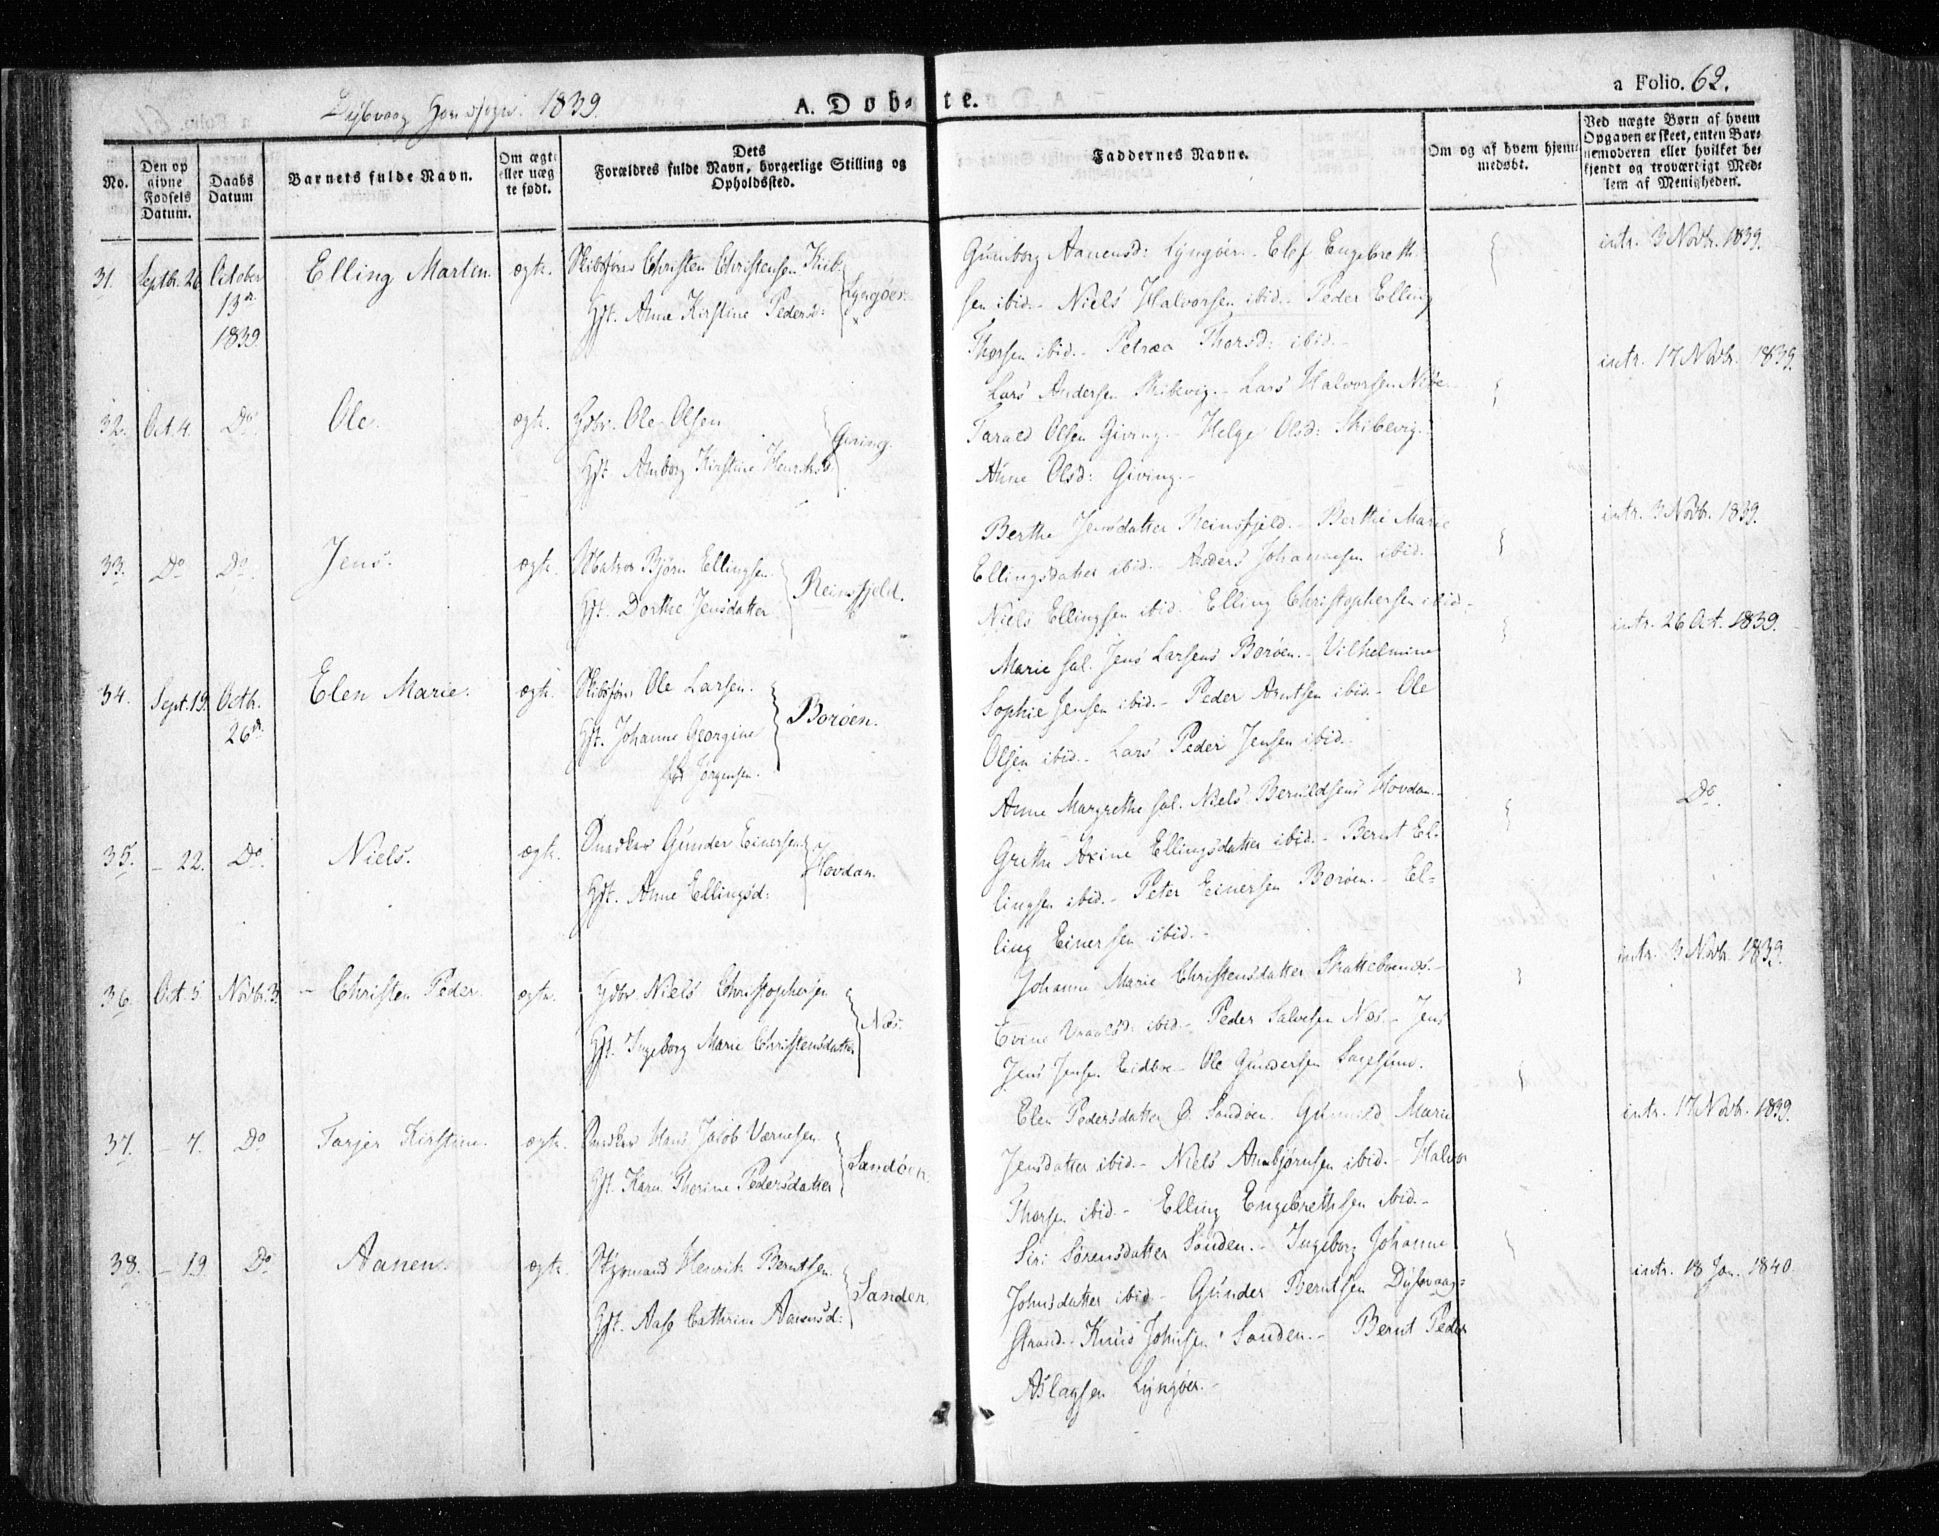 Dybvaag Hovedsogn 1839.
A. Døbte.
a Folio. 62.
No.
Den opgivne Fødsels Datum.
Daabs Datum
Barnets fulde Navn.
Om ægte eller uægte født.
Dets Forældres fulde Navn, borgerlige Stilling og Opholdssted.
Faddernes Navne.
Om og af hvem hjemmedøbt.
Ved uægte Børn af hvem Opgaven er skeet, enten Barnemoderen eller hvilket bekjendt og troværdigt Medlem af Menigheden.
31. Septbr. 26 October 13de 1839 Elling Martin. ægte.
Skibsfører Christen Christensen
Hst. Anne Kirstine Pedersd: Lyngøer.
Gunborg Aanensd: Lyngøer. Elef Engebreth-
sen ibid. - Niels Halvorsen ibid. - Peder Elling
Thorsen ibid. - Petrea Thorsd: ibid. -
intr. 3 Novbr. 1839.
32. Oct. 4. Do. Ole. ægte.
Gdbr. Ole Olsen
Hst. Kirstine Giving.
Lars Andersen Skibevig. - Lars Halvorsen
Tarald Olsen Giving. - Helge Olsd: Skibevig.
Anne Olsd: Giving. -
intr. 17 Novbr. 1839.
33. Do Do. Jens. ægte.
Matros Bjørn Ellingsen.
Hst. Dorthe Jensdatter Reinsfjeld.
Berthe Jensdatter Reinsfjeld. - Berthe Marie
Ellingsdatter ibid. - Anders Johannesen ibid.
Niels Ellingsen ibid. Elling Christophersen ibid. -
intr. 3 Novbr. 1839.
34. Sept. 19. Octbr. 26de Elen Marie. ægte.
Skibsfører Ole Larsen.
Hst. Johanne Georgine
Jørgensen. Borøen.
Marie sal. Jens Larsens Borøen. - Vilhelmine
Sophie Jensen ibid. - Peder Arntsen ibid. - Ole
Olsen ibid. - Lars Peder Jensen ibid.
intr. 26 Oct. 1839.
35. - 22. Do. Niels. ægte.
Gunder Einersen
Hst. Anne Ellingsd: Hovdan.
Anne Margrethe sal. Niels Beruldsens Hovdan. -
Grethe Axine Ellingsdatter ibid. - Bernt El-
lingsen ibid. - Peter Einersen Borøen. - El-
ling Einersen ibid. -
Do.
36. Oct. 5. Novbr. 3. - Christen Peder. ægte.
Niels Christophersen
Hst. Ingeborg Marie Christensdatter Næs.
Johanne Marie Christensdatter
ibid. - Peder Salvesen Næs. - Jens
Jens Jensen Eidbo - Ole Gundersen Sagesund.
intr. 3 Novbr. 1839.
37. - 7. Do Tarjer Kirstine. ægte.
Hans Jacob Værnesen
Hst. Karen Therine Pedersdatter Sandøen.
Elen Pedersdatter Sandøen. Marie
Jensdatter ibid. - Niels Annbjørnsen ibid. - Halvor
Thorsen ibid. - Elling Engebrethsen ibid. -
intr. 17 Novbr. 1839.
38. - 19. Do Aanen. ægte.
Henrik Berntsen
Hst. Aase Cathrine Aanensd: Sanden.
Siri Sørensdatter Sanden. - Ingeborg Johanne
Johnsdatter ibid - Gunder Berntsen Dybvaag-
strand. - Knud Johnsen Sanden. - Bernt Peder
Aslagsen Lyngøer. -
intr. 18 Jan. 1840.